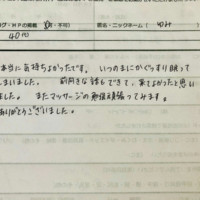 グ・HPの掲載 可・不可） 匿名・ニックネーム（ ゆみ
40代
本当に気持ちよかったです。いつのまにかぐっすり眠って
しまいました。前向きな話もできて、来てよかったと思い
ました。またマッサージの勉強頑張ってみます。
ありがとうございました。